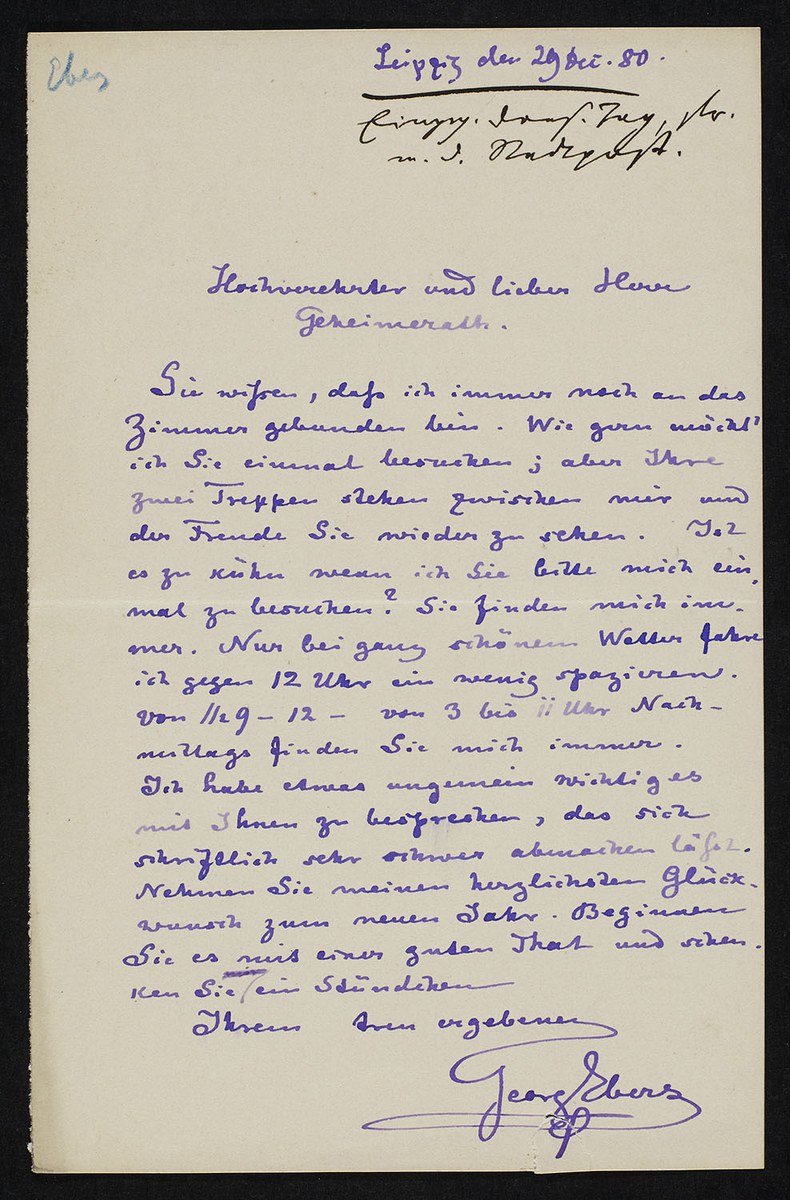 Ebers
Leipzig den 29 Dec. 80.
m. d. Stadtpost.
Hochverehrter und lieber Herr
Geheimerath.
Sie wißen, daß ich immer noch an das
Zimmer gebunden bin. Wie gern möcht'
ich Sie einmal besuchen; aber Ihre
zwei Treppen stehen zwischen mir und
der Freude Sie wieder zu sehen. Ist
es zu kühn wenn ich Sie bitte mich ein
mal zu besuchen? Sie finden mich im-
mer. Nur bei ganz schönem Wetter fahre
ich gegen 12 Uhr ein wenig spazieren.
Von 1/2 9 - 12 - von 3 bis Uhr Nach-
mittags finden Sie mich immer.
Ich habe etwas ungemein wichtiges
mit Ihnen zu besprechen, das sich
schriftlich sehr schwer abmachen läßt.
Nehmen Sie meinen herzlichsten Glück-
wunsch zum neuen Jahr. Beginnen
Sie es mit einer guten That und schen-
ken Sie ein Stündchen
Ihrem treu ergebenen
Georg Ebers